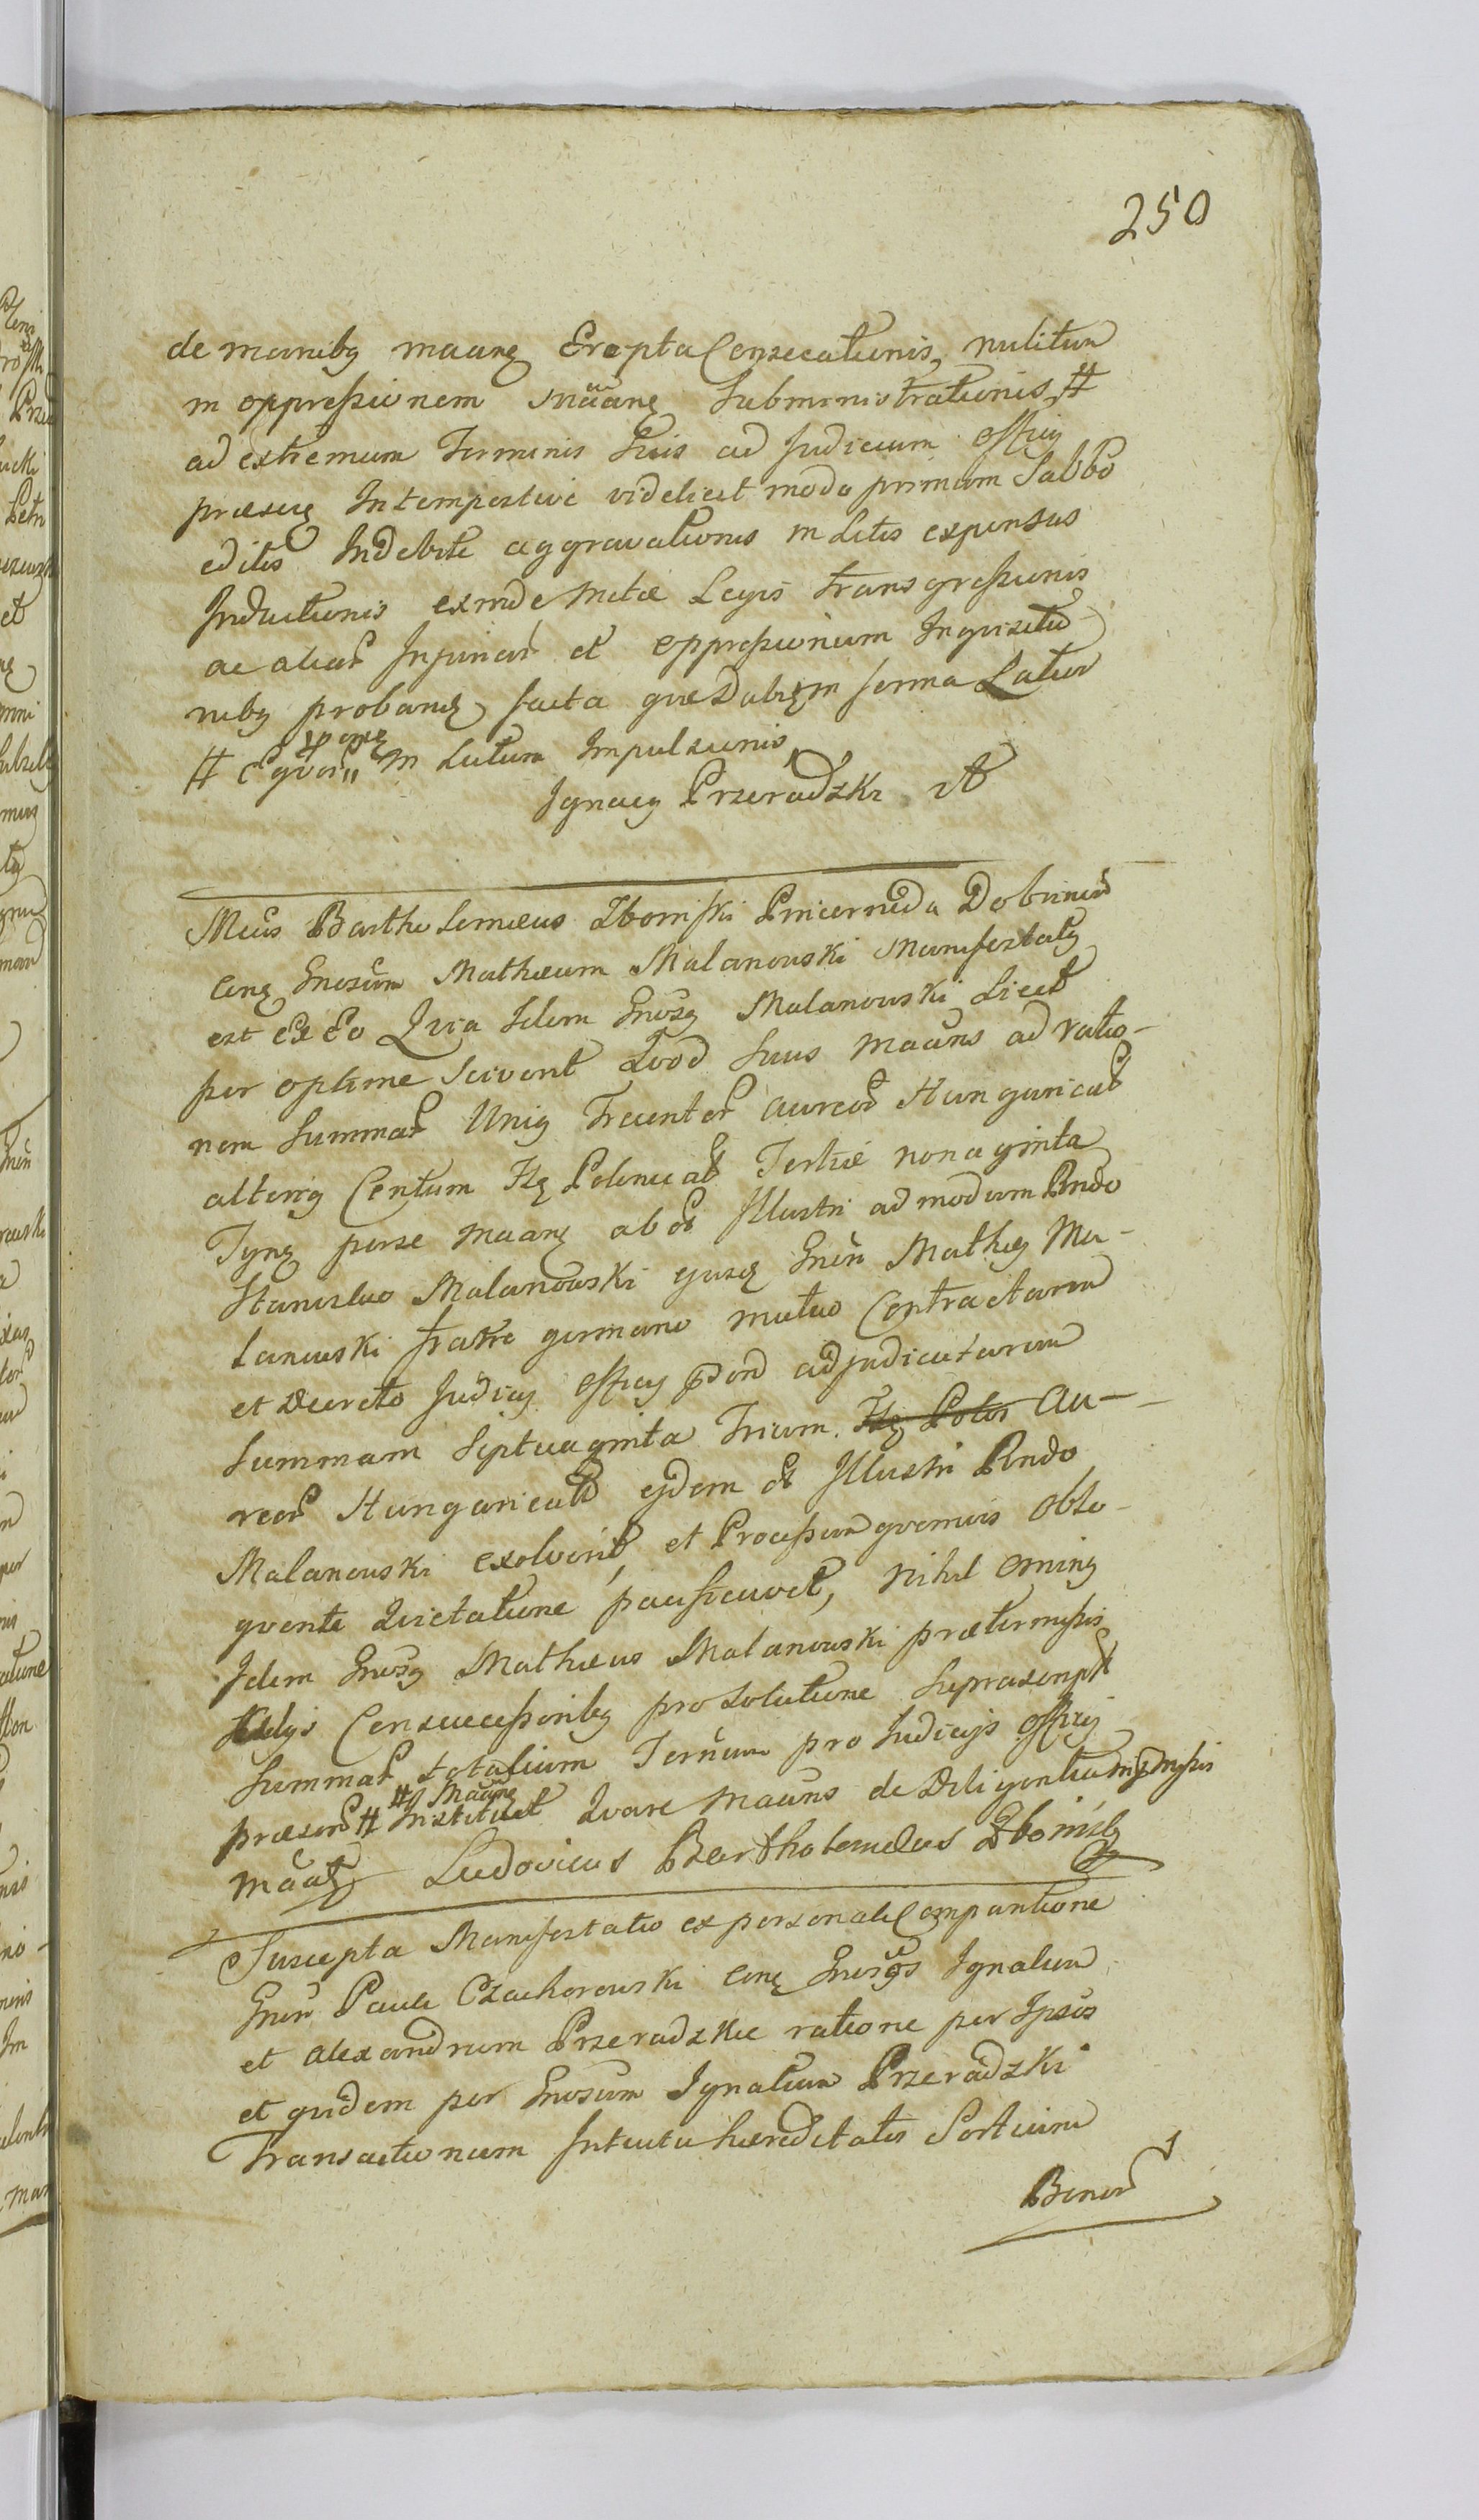 250
de manibq maanę Erepta Consecutionis, nulitum
in oppressionem maanę Subministrationis #
ad extremum Terminis Suis ad Judicium Officy
præseng Intempestive videlicet modo primum Sabbo
editis Indebite aggravationis in Litis expensas
Inductionis exinde metæ Legis transgressionis
ac aliar Injuriar et oppressionum Inquisitio
nibq probandę facta quædabęm forma Latior
# Eqvor in Lutum Impulsionis
Ignacy Przeradzki
Mcus Bartholemæus Zbomski Pincernida Dobrinen
conę Gnosum Mathæum Malanowski Manifestatq
est Ex Eo Qvia Idem Gnosq Malanowski Licet
per optime Sciverit Qvod Suus maans ad ratio-
nem Summar Uniq Trecentor aureor Hungarical
alteriq Centum Flę Polonical Tertiæ nonaginta
Tynę perse maanę ab ol Illustri admodum Rndo
Stanislao Malanowski ejusdę Gnen Mathæj Ma-
lanowski fratre germano mutuo Contractarum
et Decreto Judicij Officy pond adjudicatarum
Summam Septuaginta Trium. Flę Polon Au-
reor Hungarical ejdem ol Illustri Rndo
Malanowski exolverit, et Processum quemvis obto-
quente Quietatione pacificavit, nihil omninq
Idem Gnosq Mathæus Malanowski prætermissis
alijs Consuccessoribq pro Solutione Suprascript
Summar totalium Ternum pro Judicijs Officy
præsen # Instituit Qvare maans de Diligentia
# Maanę
maatq Ludovicus Bartholomeus Zbomskj
Suscepta Manifestatio ex personali Comparitione
Gnen Pauli Czachorowski conę Gnosos Ignatium
et Alexandrum Przeradzkie ratione per Ipsos
et quidem per Gnosum Ignatium Przeradzki
Transactionum Intuitu hæreditatis Sortium
Bonor